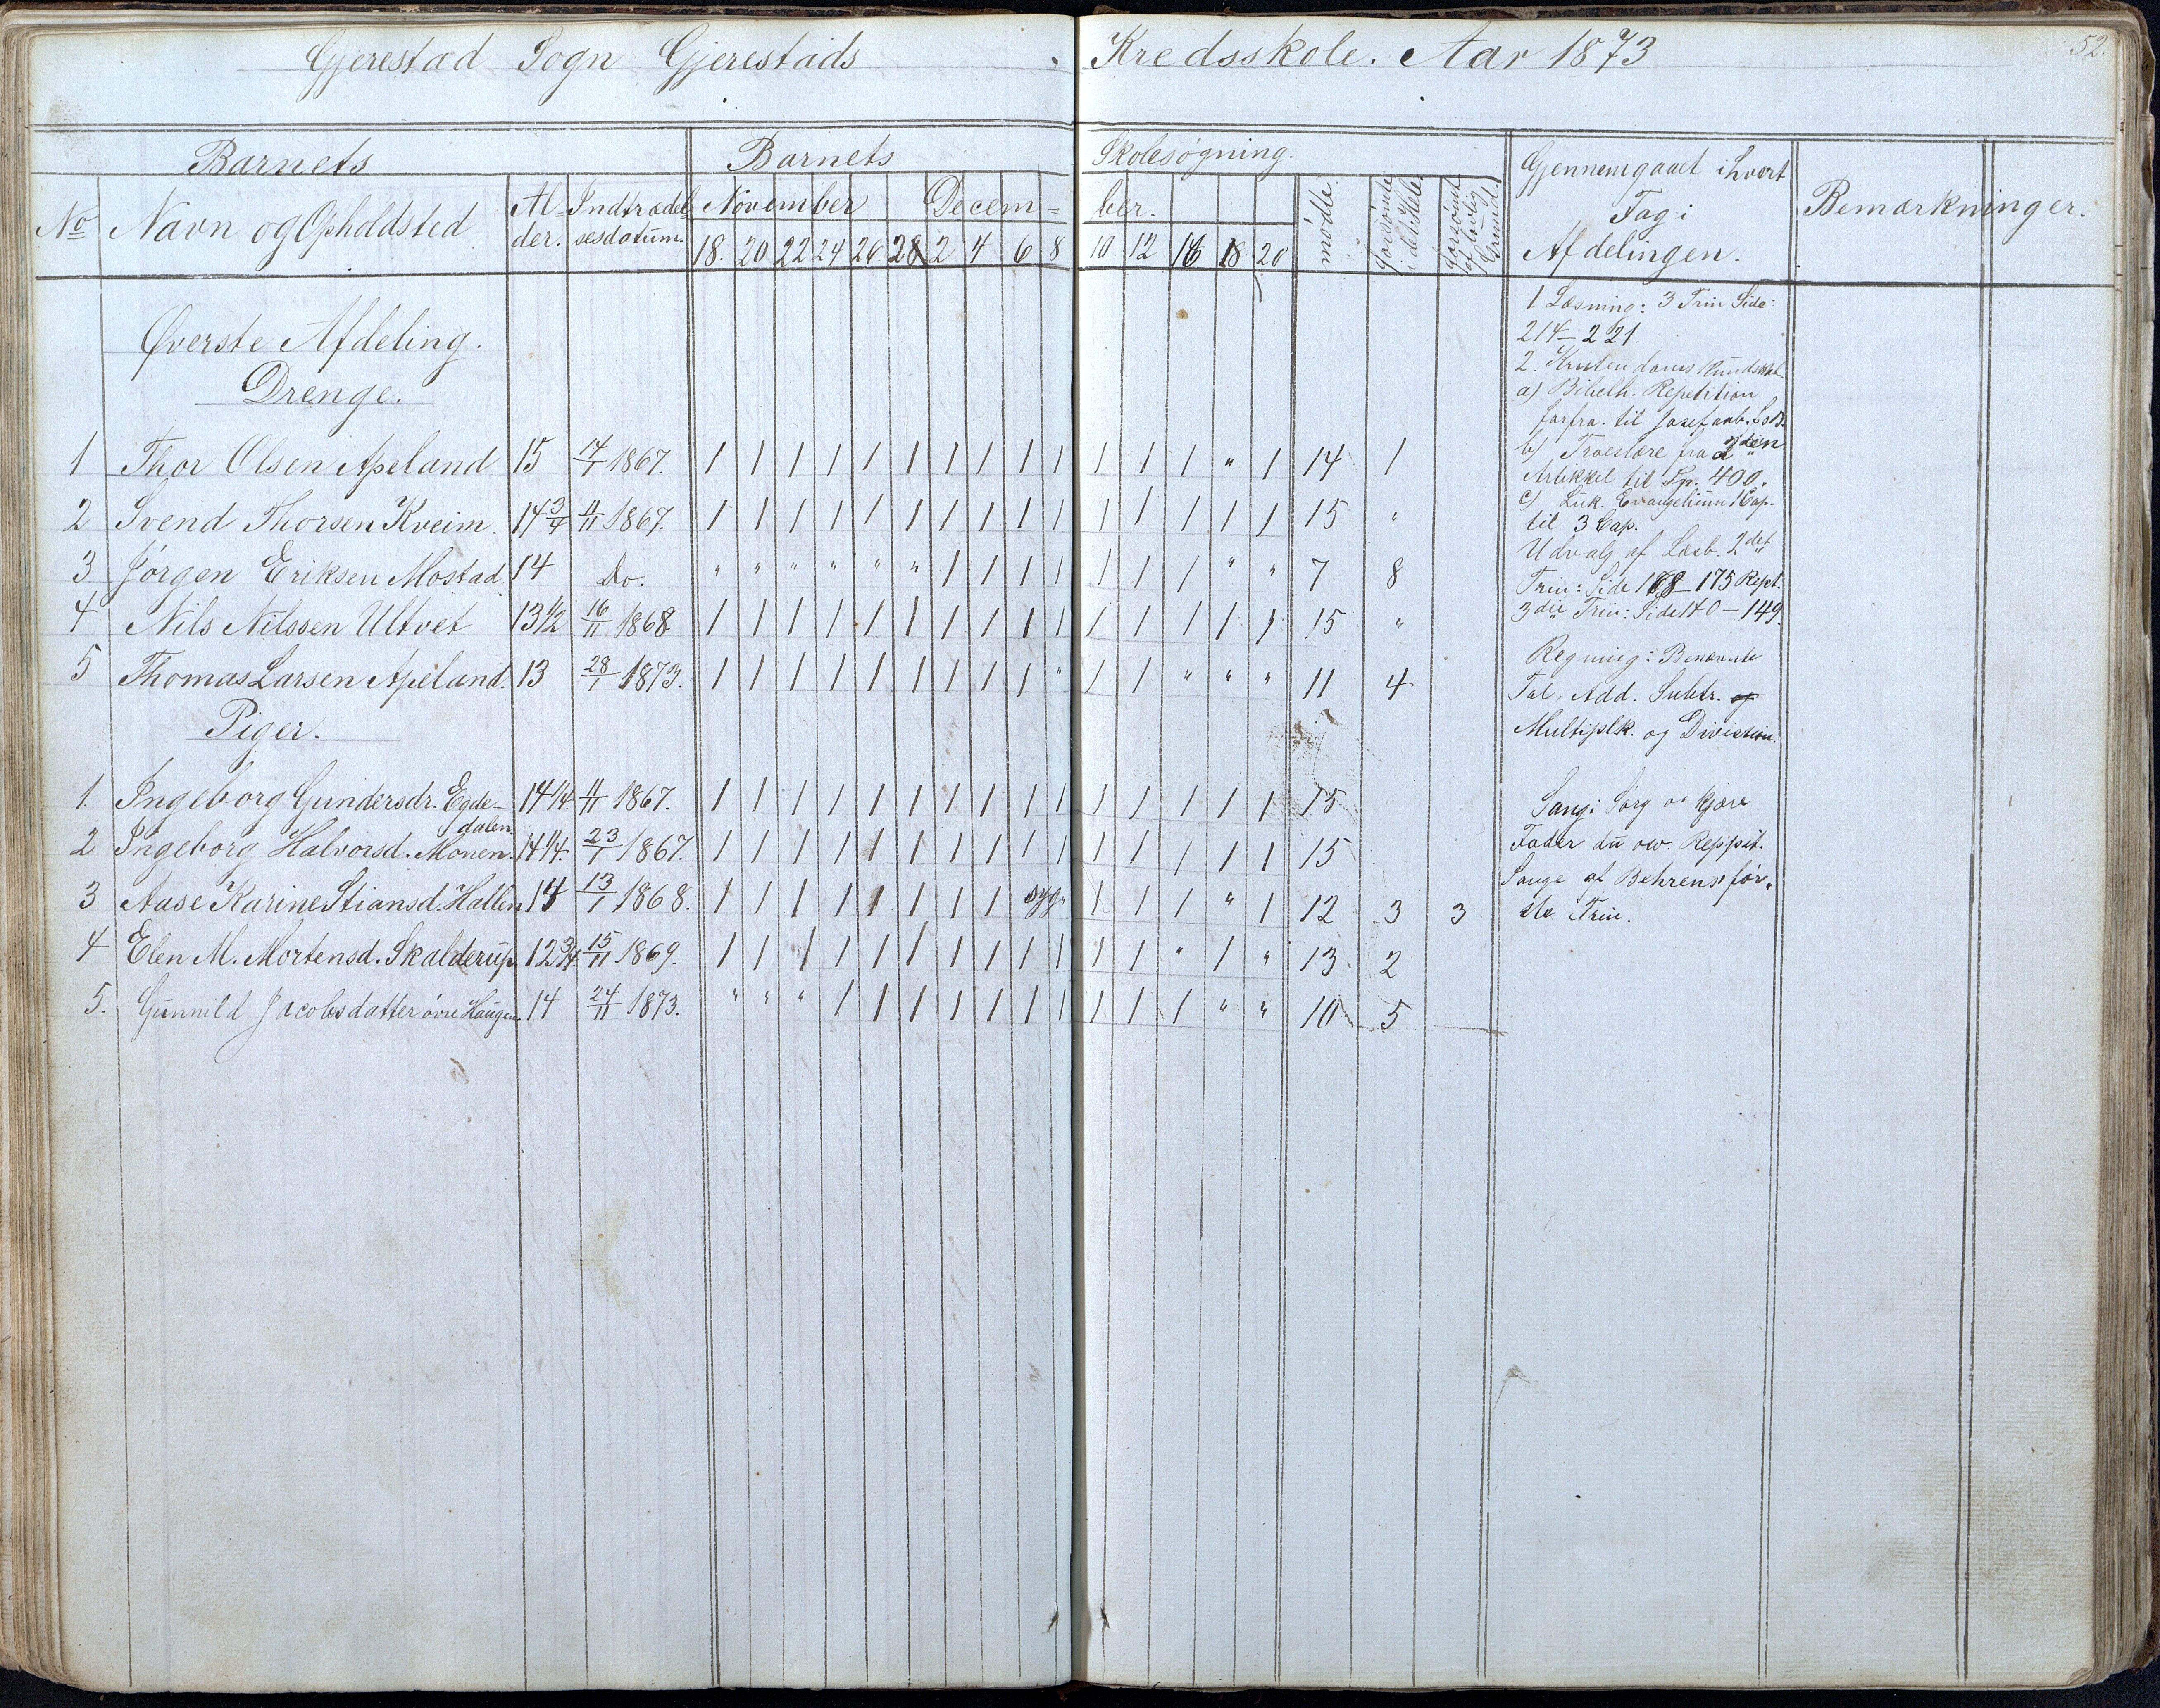 Gjerestad Sogn Gjerestads Kredsskole. Aar 1873
52.
Barnets Barnets Skolesøgning.
No Navn og Opholdsted Al- der. Indtrædel- sesdatum. November Decem- ber. mødte forsømte i det Hele forsømt af lovlig Grund. Gjennemgaaet i hvert Fag i Afdelingen. Bemærkninger.
18. 20 22 24 26 28 2 4 6 8 10 12 16 18 20
Øverste Afdeling.
Drenge.
1 Thor Olsen Apeland 15 14/1 1867. 1 1 1 1 1 1 1 1 1 1 1 1 1 " 1 14 1
2 Svend Thorsen Kveim. 14 3/4 11/11 1867. 1 1 1 1 1 1 1 1 1 1 1 1 1 1 1 15 "
3 Jørgen Eriksen Mostad. 14 Do. " " " " " " 1 1 1 1 1 1 1 " " 7 8
4 Nils Nilssen Ultvet 13 1/2 16/11 1868 1 1 1 1 1 1 1 1 1 1 1 1 1 1 1 15 "
5 Thomas Larsen Apeland. 13 28/1 1873. 1 1 1 1 1 1 1 1 1 " 1 1 " " " 11 4
Piger.
1. Ingeborg Gundersdr. Egde- dalen. 14 1/4 11/11 1867. 1 1 1 1 1 1 1 1 1 1 1 1 1 1 1 15
2 Ingeborg Halvorsd. Monen. 14 1/4. 23/1 1867. 1 1 1 1 1 1 1 1 1 1 1 1 1 1 1 15
3 Aase Karine Stiansd. Hallen 14 13/1 1868. 1 1 1 1 1 1 1 1 syg. 1 1 1 " 1 12 3 3
4 Elen M. Mortensd. Skalderup 12 3/4 15/11 1869. 1 1 1 1 1 1 1 1 1 1 1 1 " 1 " 13 2
5. Gunnild Jacobsdatter øvre Haugen 14 24/11 1873. " " " 1 1 1 1 1 1 1 1 1 1 " " 10 5
1 Læsning: 3 Trin Side:
214–221.
2. Kristendomskundskab
a) Bibelh. Repetition
forfra. til Josef
b) Troeslære fra 2den
Artikkel til Sp. 400.
c) Luk. Evangelium 1 Cap.
til 3 Cap.
Udvalg af Læsb. 2det
Trin: Side 168–175 Rept.
3die Trin: Side 140–149.
Regning: Benævnte
Tal, Add. Subtr. og
Multiplk. og Division.
Sang: Sørg o kjære
Fader du osv. Reppit.
Sange af Behrens' før-
ste Trin.